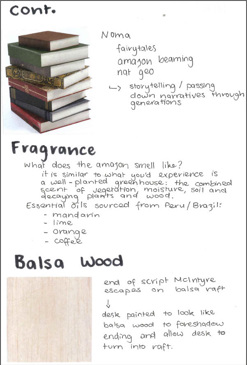 Cont.
Noma
fairytales
amazon learning
nat geo
↳ storytelling / passing
down narratives through
generations
Fragrance
What does the amazon smell like?
it is similar to what you'd experience is
a well-planted greenhouse: the combined
scent of vegetation, moisture, soil and
decaying plants and wood.
Essential oils sourced from Peru/Brazil:
- mandarin
- lime
- orange
- coffee
Balsa Wood
end of script McIntyre
escapes on balsa raft
↓
desk painted to look like
balsa wood to foreshadow
ending and allow desk to
turn into raft.